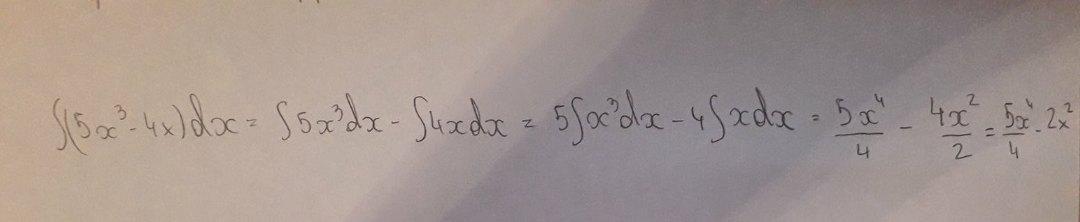 ∫(5x³-4x)dx = ∫5x³dx - ∫4xdx = 5∫x³dx - 4∫xdx = 5x⁴/4 - 4x²/2 = 5x⁴/4 - 2x²